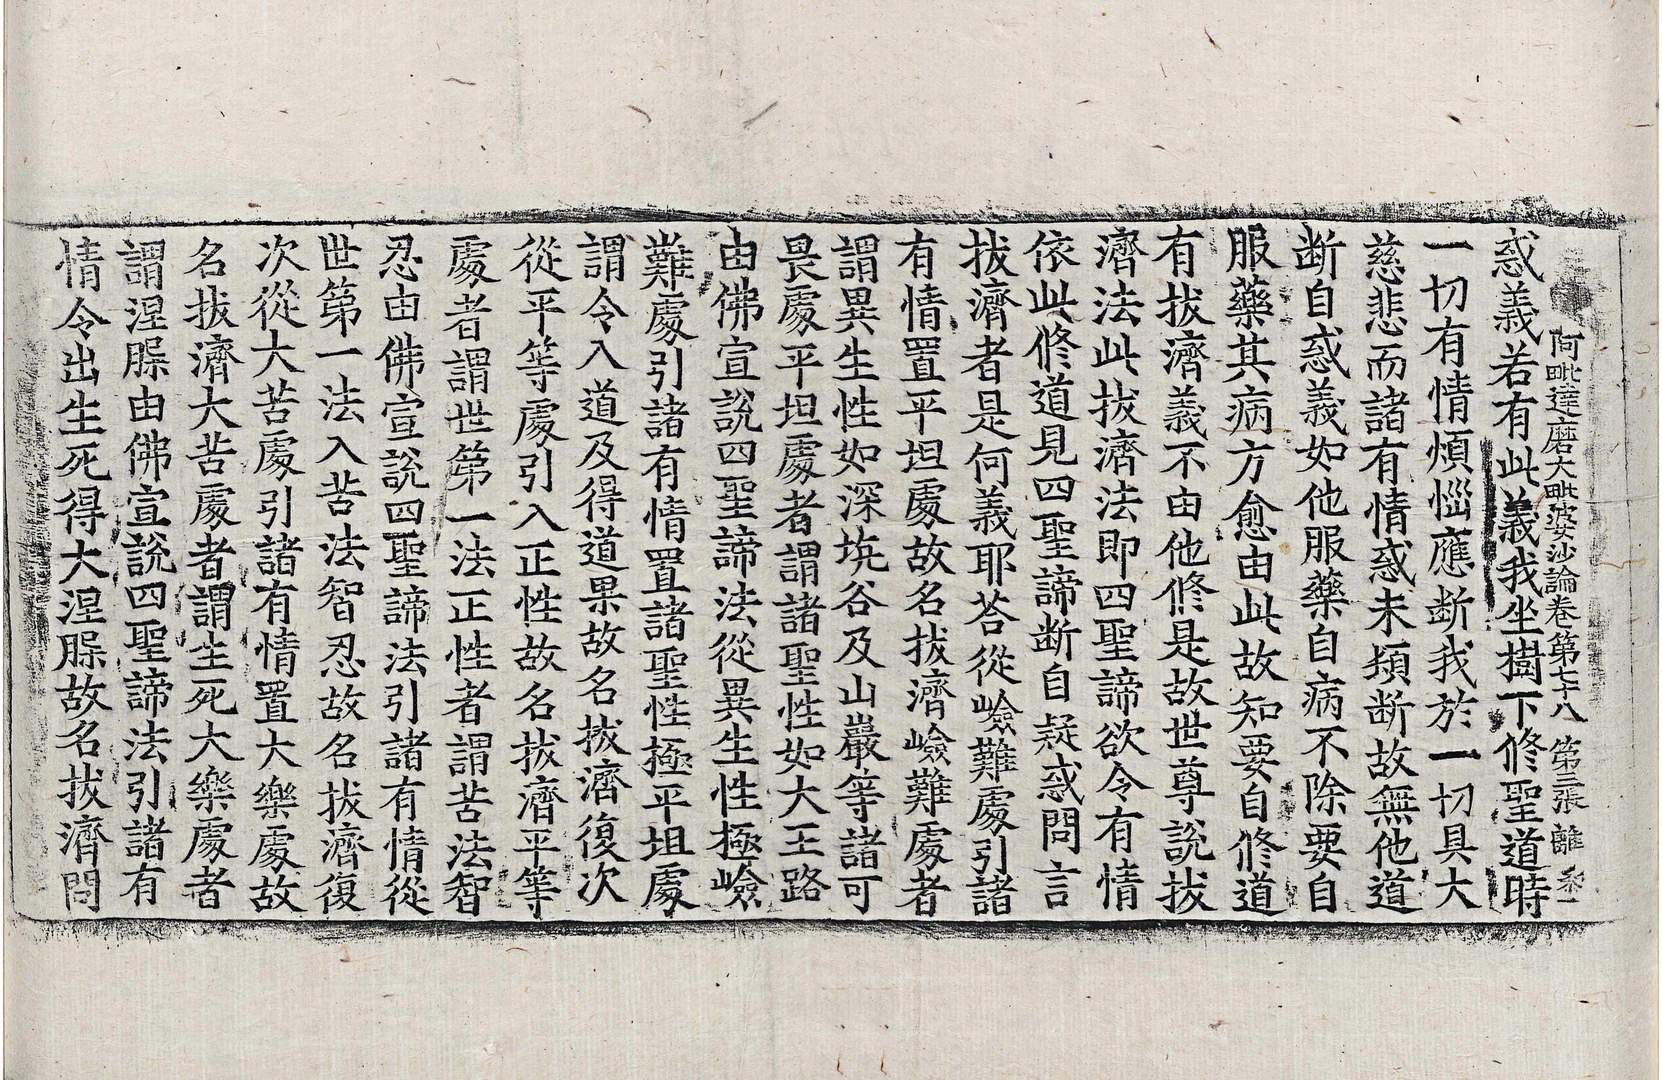 阿毗達磨大毗婆沙論卷第七十八 第三張 離
惑義若有此義我坐樹下修聖道時
一切有情煩惱應斷我於一切具大
慈悲而諸有情惑未頓斷故無他道
断自惑義如他服藥自病不除要自
服藥其病方愈由此故知要自修道
有拔濟義不由他修是故世尊說拔
濟法此拔濟法即四聖諦欲令有情
依此修道見四聖諦断自疑惑問言
拔濟者是何義耶荅從嶮難處引諸
有情置平坦處故名拔濟嶮難處者
謂異生性如深坑谷及山巖等諸可
畏處平坦處者謂諸聖性如大王路
由佛宣說四聖諦法從異生性極嶮
難處引諸有情置諸聖性極平坦處
謂令入道及得道果故名拔濟復次
從平等處引入正性故名拔濟平等
處者謂世第一法正性者謂苦法智
忍由佛宣說四聖諦法引諸有情從
世第一法入苦法智忍故名拔濟復
次從大苦處引諸有情置大樂處故
名拔濟大苦處者謂生死大樂處者
謂涅槃由佛宣說四聖諦法引諸有
情令出生死得大涅槃故名拔濟問